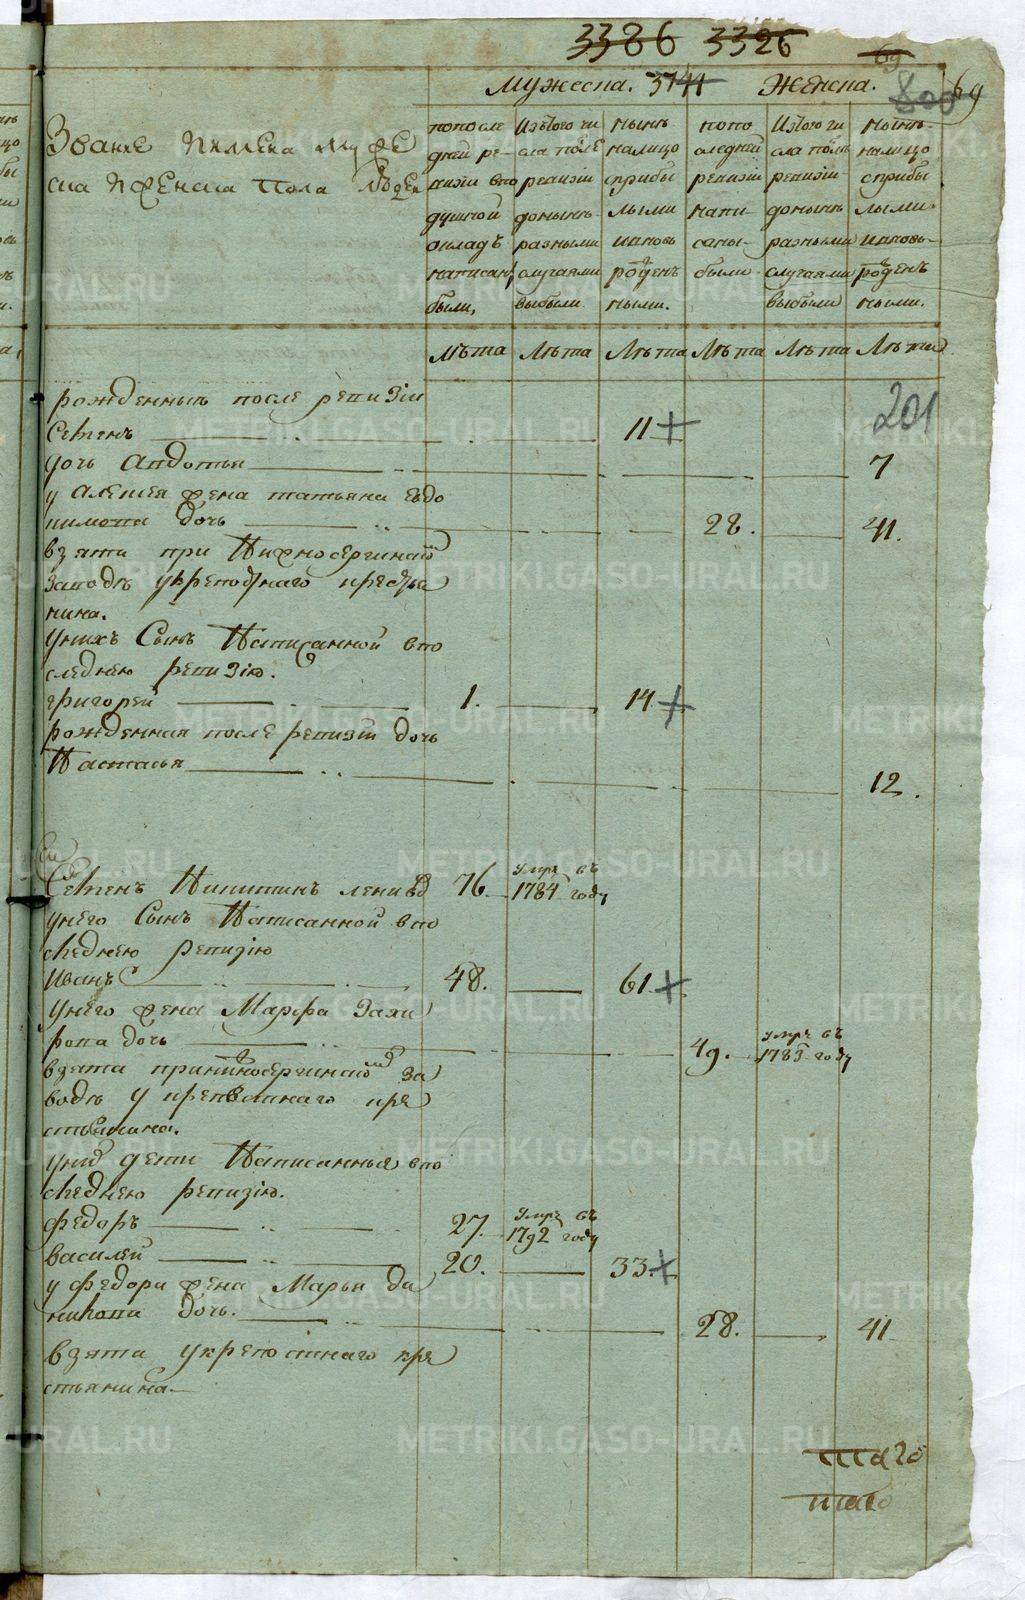 3386 3326
69
Мужеска. 3741 Женска. 800 69
Звание и имена муже
ска и женска пола людей
попосле дней ре- визии впо душной окладъ написаны были,
Изтого чи сла после ревизии донынѣ разными случаями выбыли
Нынѣ налицо сприбы лыми ивновь рожден ными.
попо следней ревизии напи- саны- были
Изтого чи сла послѣ ревизии- донынѣ разными случаями выбыли
Нынѣ- налицо сприбы лыми ивновь- рожденъ ными.
лѣта лѣта лѣта лѣта лѣта лѣта
201
рожденныя после ревизии
Семенъ 11
дочь Авдотья 7
у Алексея жена татьяна Евдо
кимова дочь 28. 41.
взята при Нижносергинском
заводѣ укрепостнаго крестья
нина.
унихъ Сынъ Написанной впо
следнею ревизию.
григорей 1. 14
рожденная после ревизии дочь
Настасья 12.
Семенъ Никитинъ 76. умре въ 1784 году
унего Сынъ Написанной впо
следнею ревизию
Иванъ 48. 61
Унего жена Марфа Заха
рова дочь 49. умре въ 1785 году
взята принижносергинском за
водѣ укрепостнаго кре
стьянина.
уних дети Написанныя впо
следнею ревизию.
федоръ 27. умре въ 1792 году
василей 20. 33.
у Федора жена Марья да
нилова дочь. 28. 41
взята укрепостнаго кре
стьянина.
итаго
итаго
METRIKI.GASO-URAL.RU